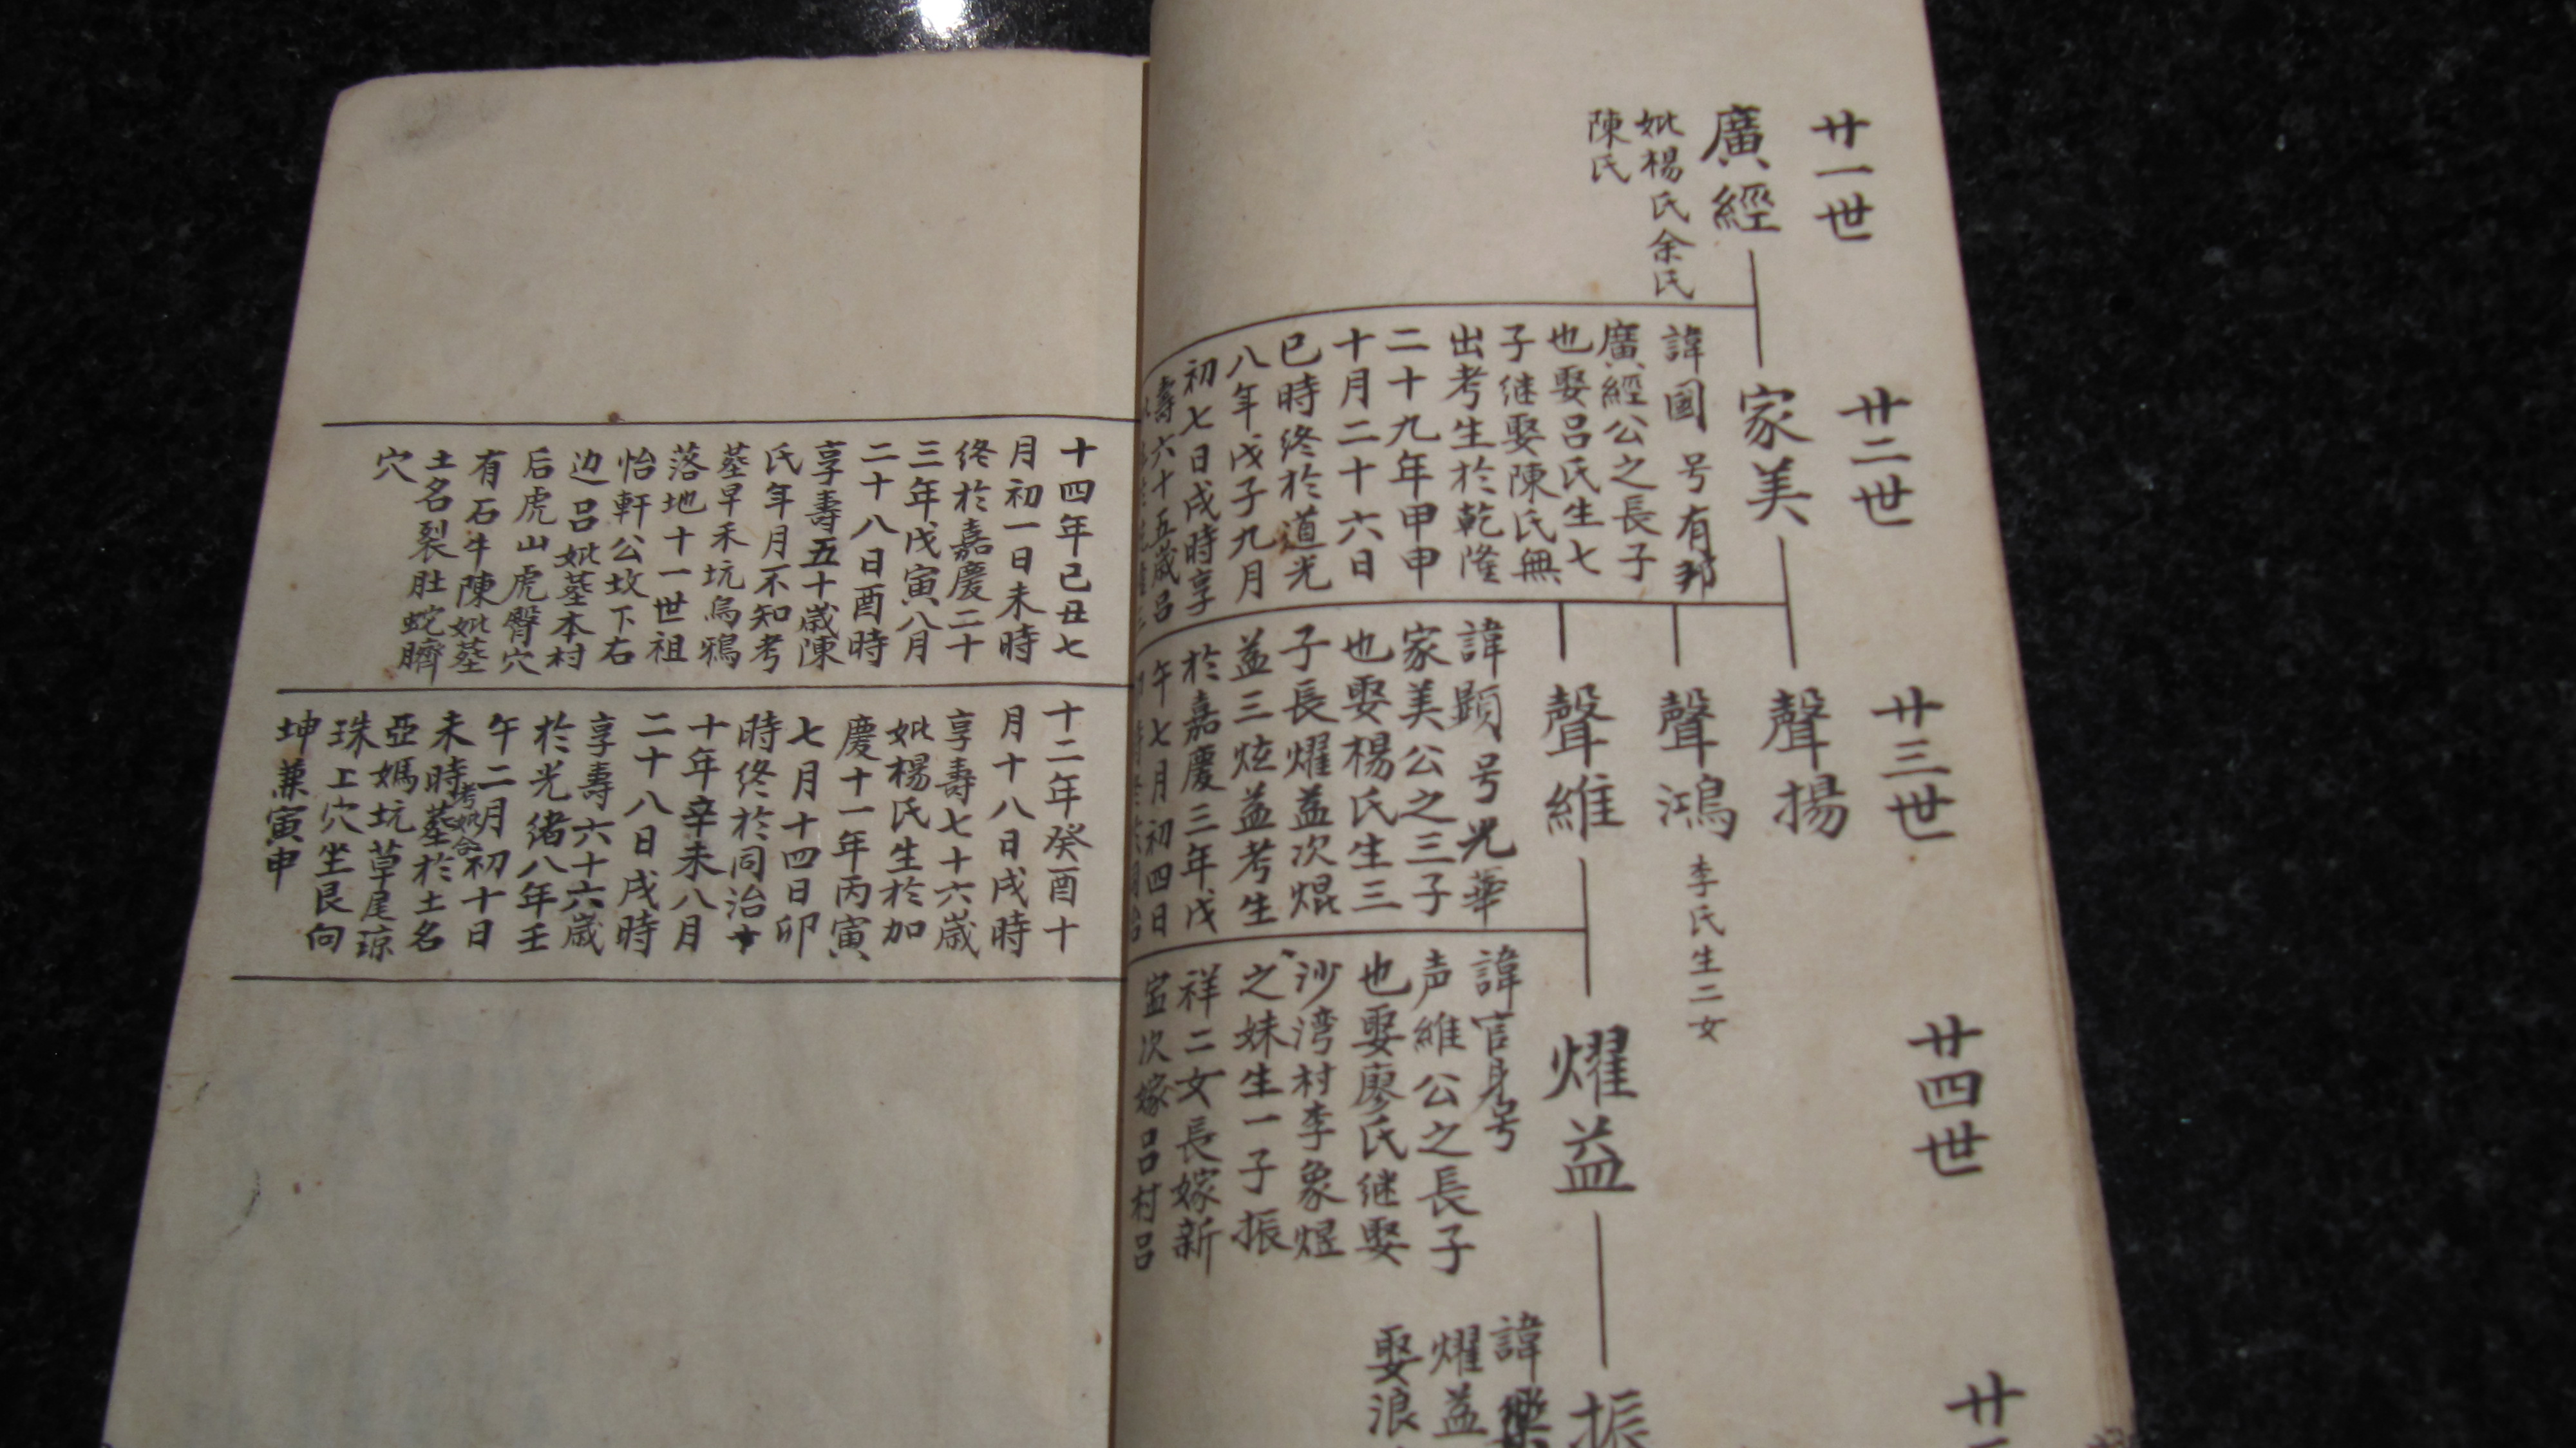 廿一世
廣經
妣楊氏余氏
陳氏
廿二世
家美
諱國号有邦
廣經公之長子
也娶呂氏生七
子继娶陳氏無
出考生於乾隆
二十九年甲申
十月二十六日
巳時終於道光
八年戊子九月
初七日戌時享
壽六十五歲呂
廿三世
聲揚
聲鴻
李氏生二女
聲維
諱顕号光華
家美公之三子
也娶楊氏生三
子長燿益次焜
益三炫益考生
於嘉慶三年戊
午七月初四日
廿四世
燿益
諱官身号
声維公之長子
也娶廖氏继娶
沙湾村李象煜
之妹生一子振
祥二女長嫁新
次嫁呂村呂
廿
振
諱
燿益
娶浪
十四年己丑七
月初一日未時
终於嘉慶二十
三年戊寅八月
二十八日酉時
享壽五十歲陳
氏年月不知考
墓早禾坑烏鴉
落地十一世祖
怡軒公坟下右
边呂妣墓本村
后虎山虎臀穴
有石牛陳妣墓
土名裂肚蛇臍
穴
十二年癸酉十
月十八日戌時
享壽七十六歲
妣楊氏生於加
慶十一年丙寅
七月十四日卯
時终於同治十
十年辛未八月
二十八日戌時
享壽六十六歲
於光绪八年壬
午二月初十日
未時考妣合墓於土名
亞媽坑草尾琼
珠上穴坐艮向
坤兼寅申